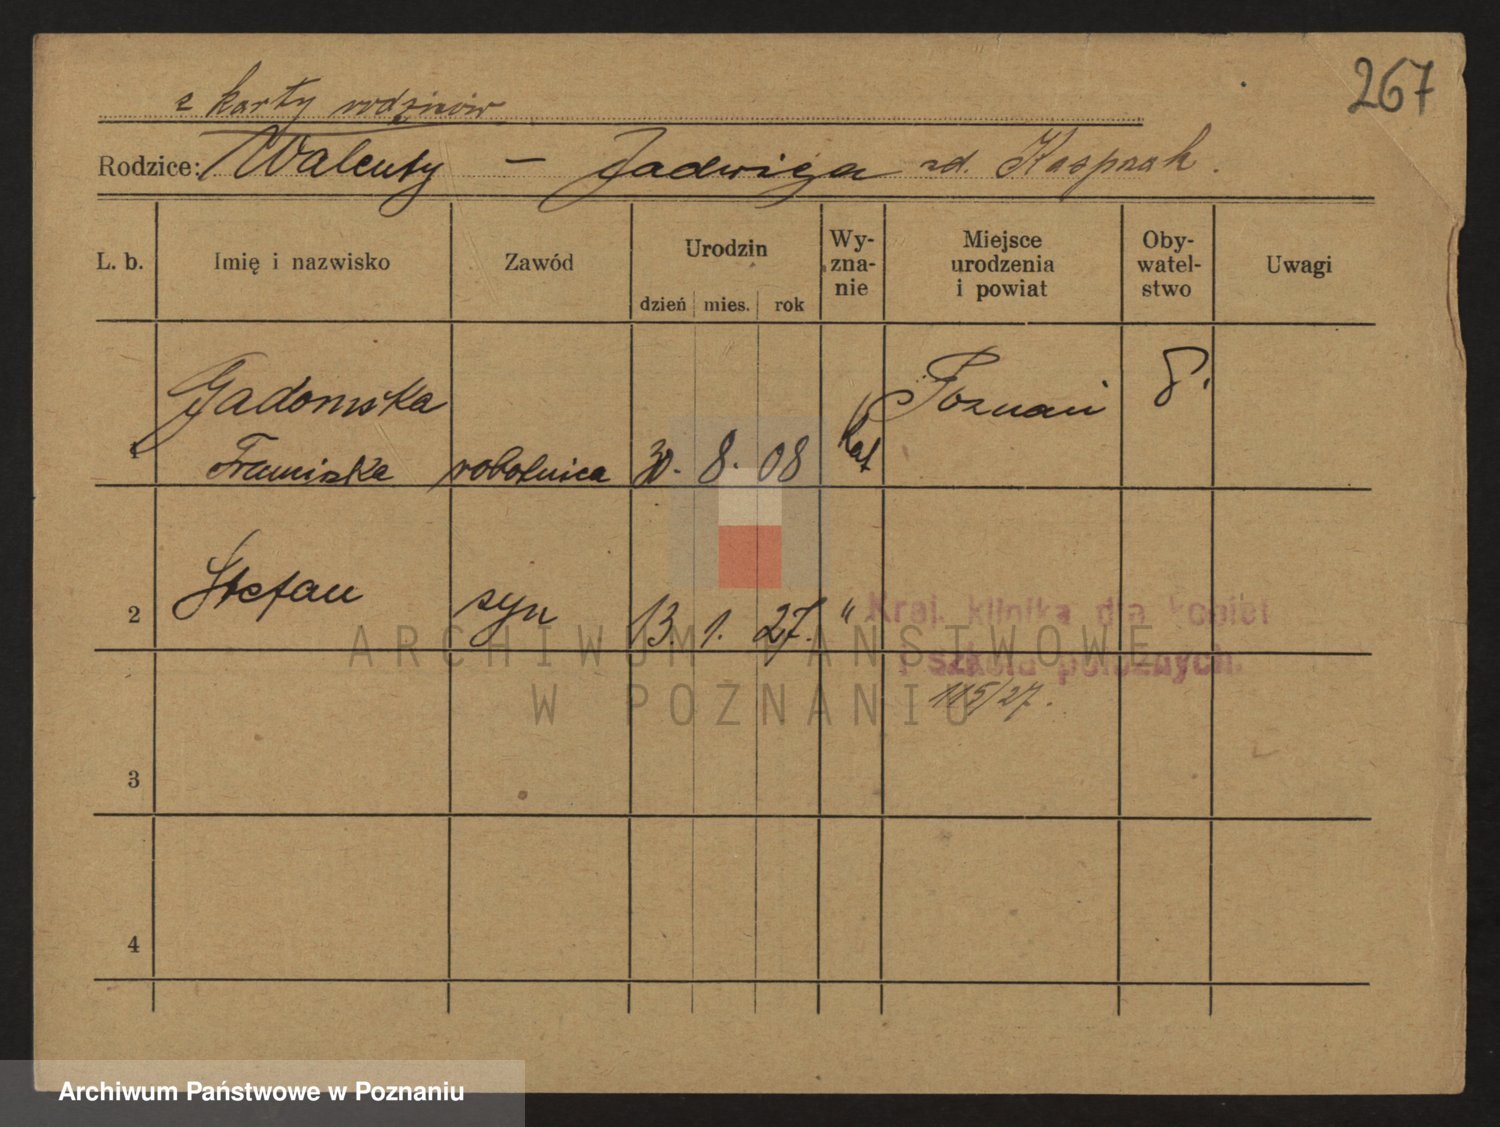 267
z karty rodziców
Rodzice: Walenty — Jadwiga zd. Kasprzak.
L. b. Imię i nazwisko Zawód Urodzin dzień mies. rok Wy-zna-nie Miejsce urodzenia i powiat Oby-watel-stwo Uwagi
Gadomska Poznań P.
1 Franciszka robotnica 30. 8. 08 Kat
2 Stefan syn 13. 1. 27. " Kraj. klinika dla kobiet
i szkoła położnych.
115/27.
3
4
ARCHIWUM PAŃSTWOWE
W POZNANIU
Archiwum Państwowe w Poznaniu